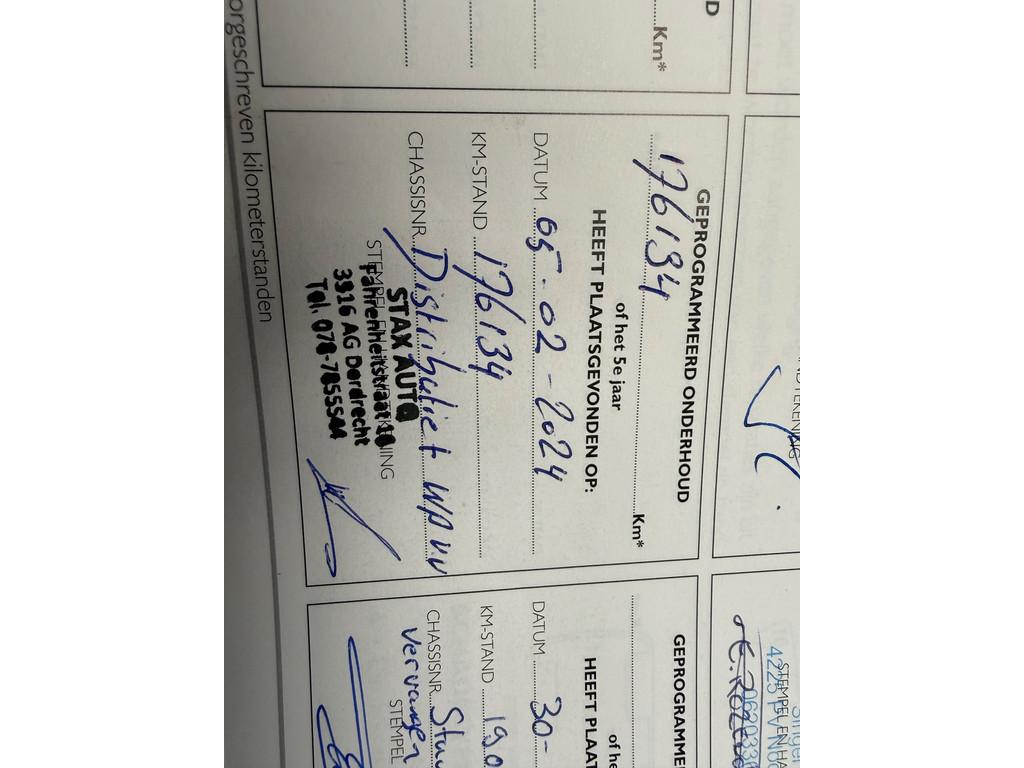 D
Km*
orgeschreven kilometerstanden
GEPROGRAMMEERD ONDERHOUD
176134 Km*
of het 5e jaar
HEEFT PLAATSGEVONDEN OP:
DATUM 05-02-2024
KM-STAND 176134
CHASSISNR. Distributie + WP v.v
STEMPEL EN HANDTEKENING
STAX AUTO
Fahrenheitstraat 10
3316 AG Dordrecht
Tel. 078-7855544
GEPROGRAMME
of he
HEEFT PLAAT
DATUM 30-
KM-STAND 190
CHASSISNR. Stuu
vervangen
STEMPEL
TEKENING
Singel
STEMPEL EN HA
4225 PV